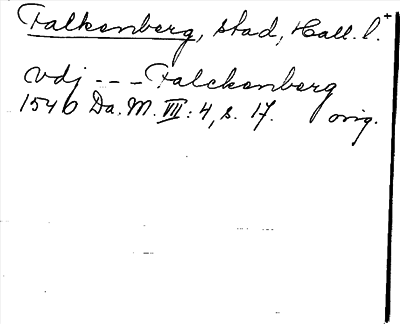 Falkenberg, stad, Hall. l.+
vdj --- Falckenberg
1546 Da. M. VII: 4, s. 17. orig.